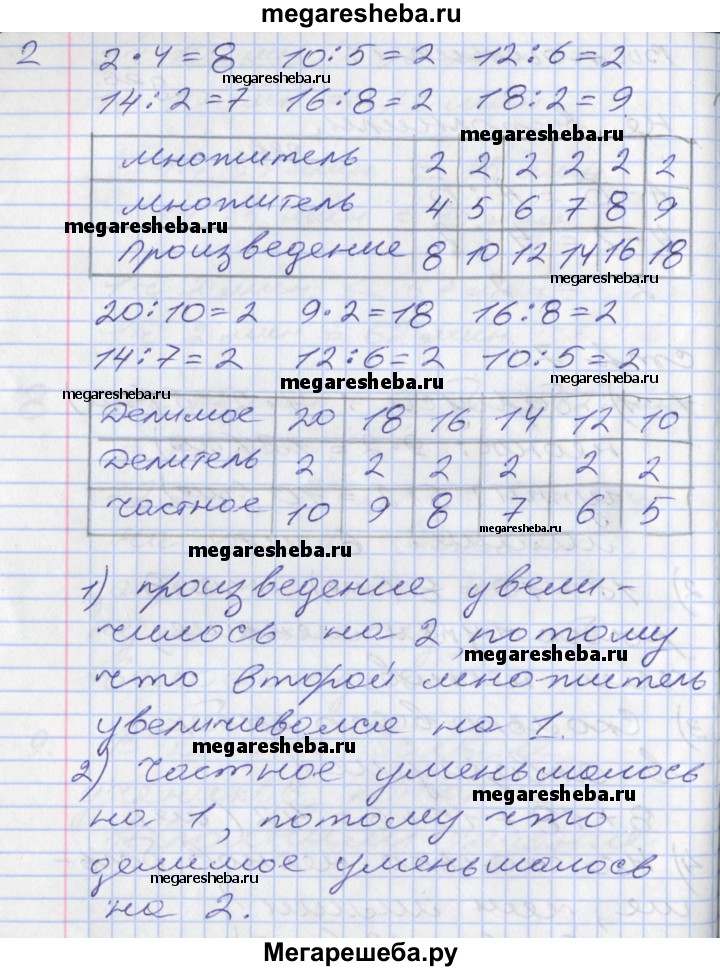 megaresheba.ru
2 2·4=8 10:5=2 12:6=2
megaresheba.ru
14:2=7 16:8=2 18:2=9.
megaresheba.ru
множитель 2 2 2 2 2 2
множитель 4 5 6 7 8 9
megaresheba.ru
Произведение 8 10 12 14 16 18
megaresheba.ru
20:10=2 9·2=18 16:8=2
14:7=2 12:6=2 10:5=2
megaresheba.ru megaresheba.ru
megaresheba.ru
Делимое 20 18 16 14 12 10
Делитель 2 2 2 2 2 2
Частное 10 9 8 7 6. 5
megaresheba.ru
megaresheba.ru
1) произведение увели-
чилось на 2, потому
megaresheba.ru
что второй множитель
увеличивался на 1.
megaresheba.ru
2) частное уменьшалось
megaresheba.ru
на 1, потому что
делимое уменьшалось
megaresheba.ru
на 2.
Мегарешеба.ру